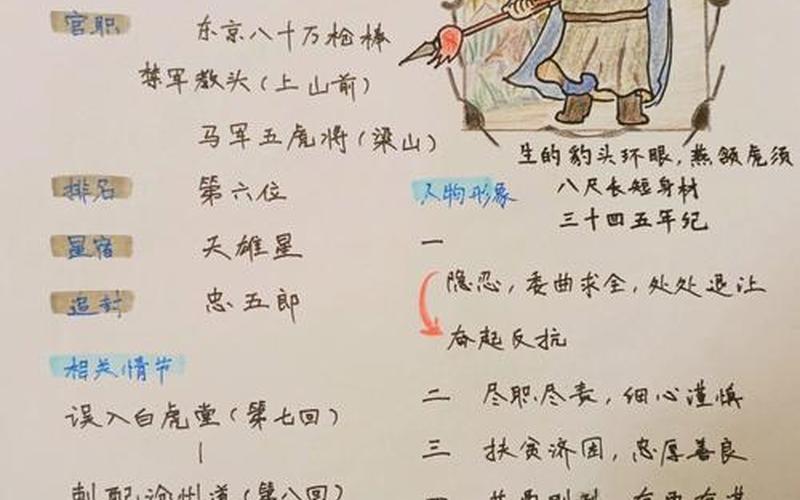 官职 东京八十万枪棒
禁军教头(上山前)
马军五虎将(梁山)
排名 第六位
星宿 天雄星
追封 忠五郎
相关情节
误入白虎堂(第七回)
刺配沧州道(第八回)
生的豹头环眼,燕颔虎须
八尺长短身材
三十四五年纪
人物形象
一
隐忍,委曲求全,处处退让
奋起反抗
二 尽职尽责,细心谨慎
三 扶贫济困,忠厚善良